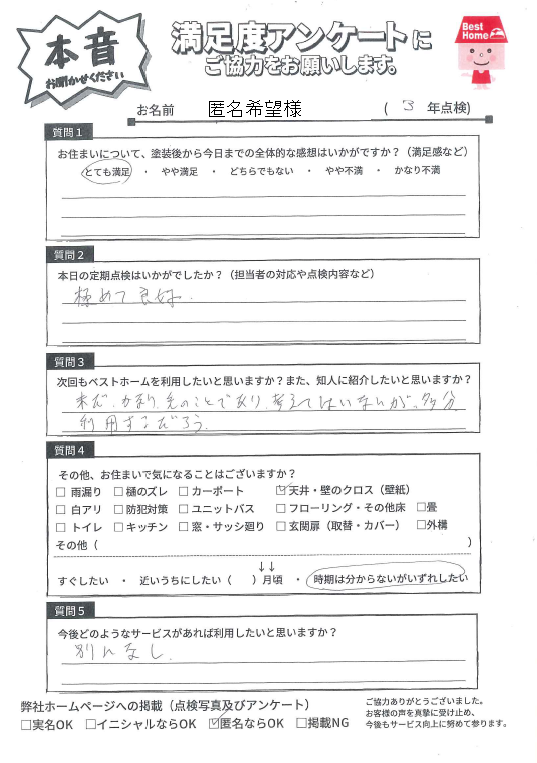 本音
お聞かせください
満足度アンケートに
ご協力をお願いします。
Best Home
お名前 匿名希望様 ( 3 年点検)
質問1
お住まいについて、塗装後から今日までの全体的な感想はいかがですか？（満足感など）
とても満足 ・ やや満足 ・ どちらでもない ・ やや不満 ・ かなり不満
質問2
本日の定期点検はいかがでしたか？（担当者の対応や点検内容など）
極めて良好.
質問3
次回もベストホームを利用したいと思いますか？また、知人に紹介したいと思いますか？
未だ、かなり、先のことであり、考えてはいないが、多分
利用するだろう.
質問4
その他、お住まいで気になることはございますか？
□ 雨漏り □ 樋のズレ □ カーポート ☑ 天井・壁のクロス（壁紙）
□ 白アリ □ 防犯対策 □ ユニットバス □ フローリング・その他床 □ 畳
□ トイレ □ キッチン □ 窓・サッシ廻り □ 玄関扉（取替・カバー） □ 外構
その他（ ）
↓↓
すぐしたい ・ 近いうちにしたい（ ）月頃 ・ 時期は分からないがいずれしたい
質問5
今後どのようなサービスがあれば利用したいと思いますか？
別になし.
弊社ホームページへの掲載（点検写真及びアンケート）
□実名OK □イニシャルならOK ☑匿名ならOK □掲載NG
ご協力ありがとうございました。
お客様の声を真摯に受け止め、
今後もサービス向上に努めて参ります。